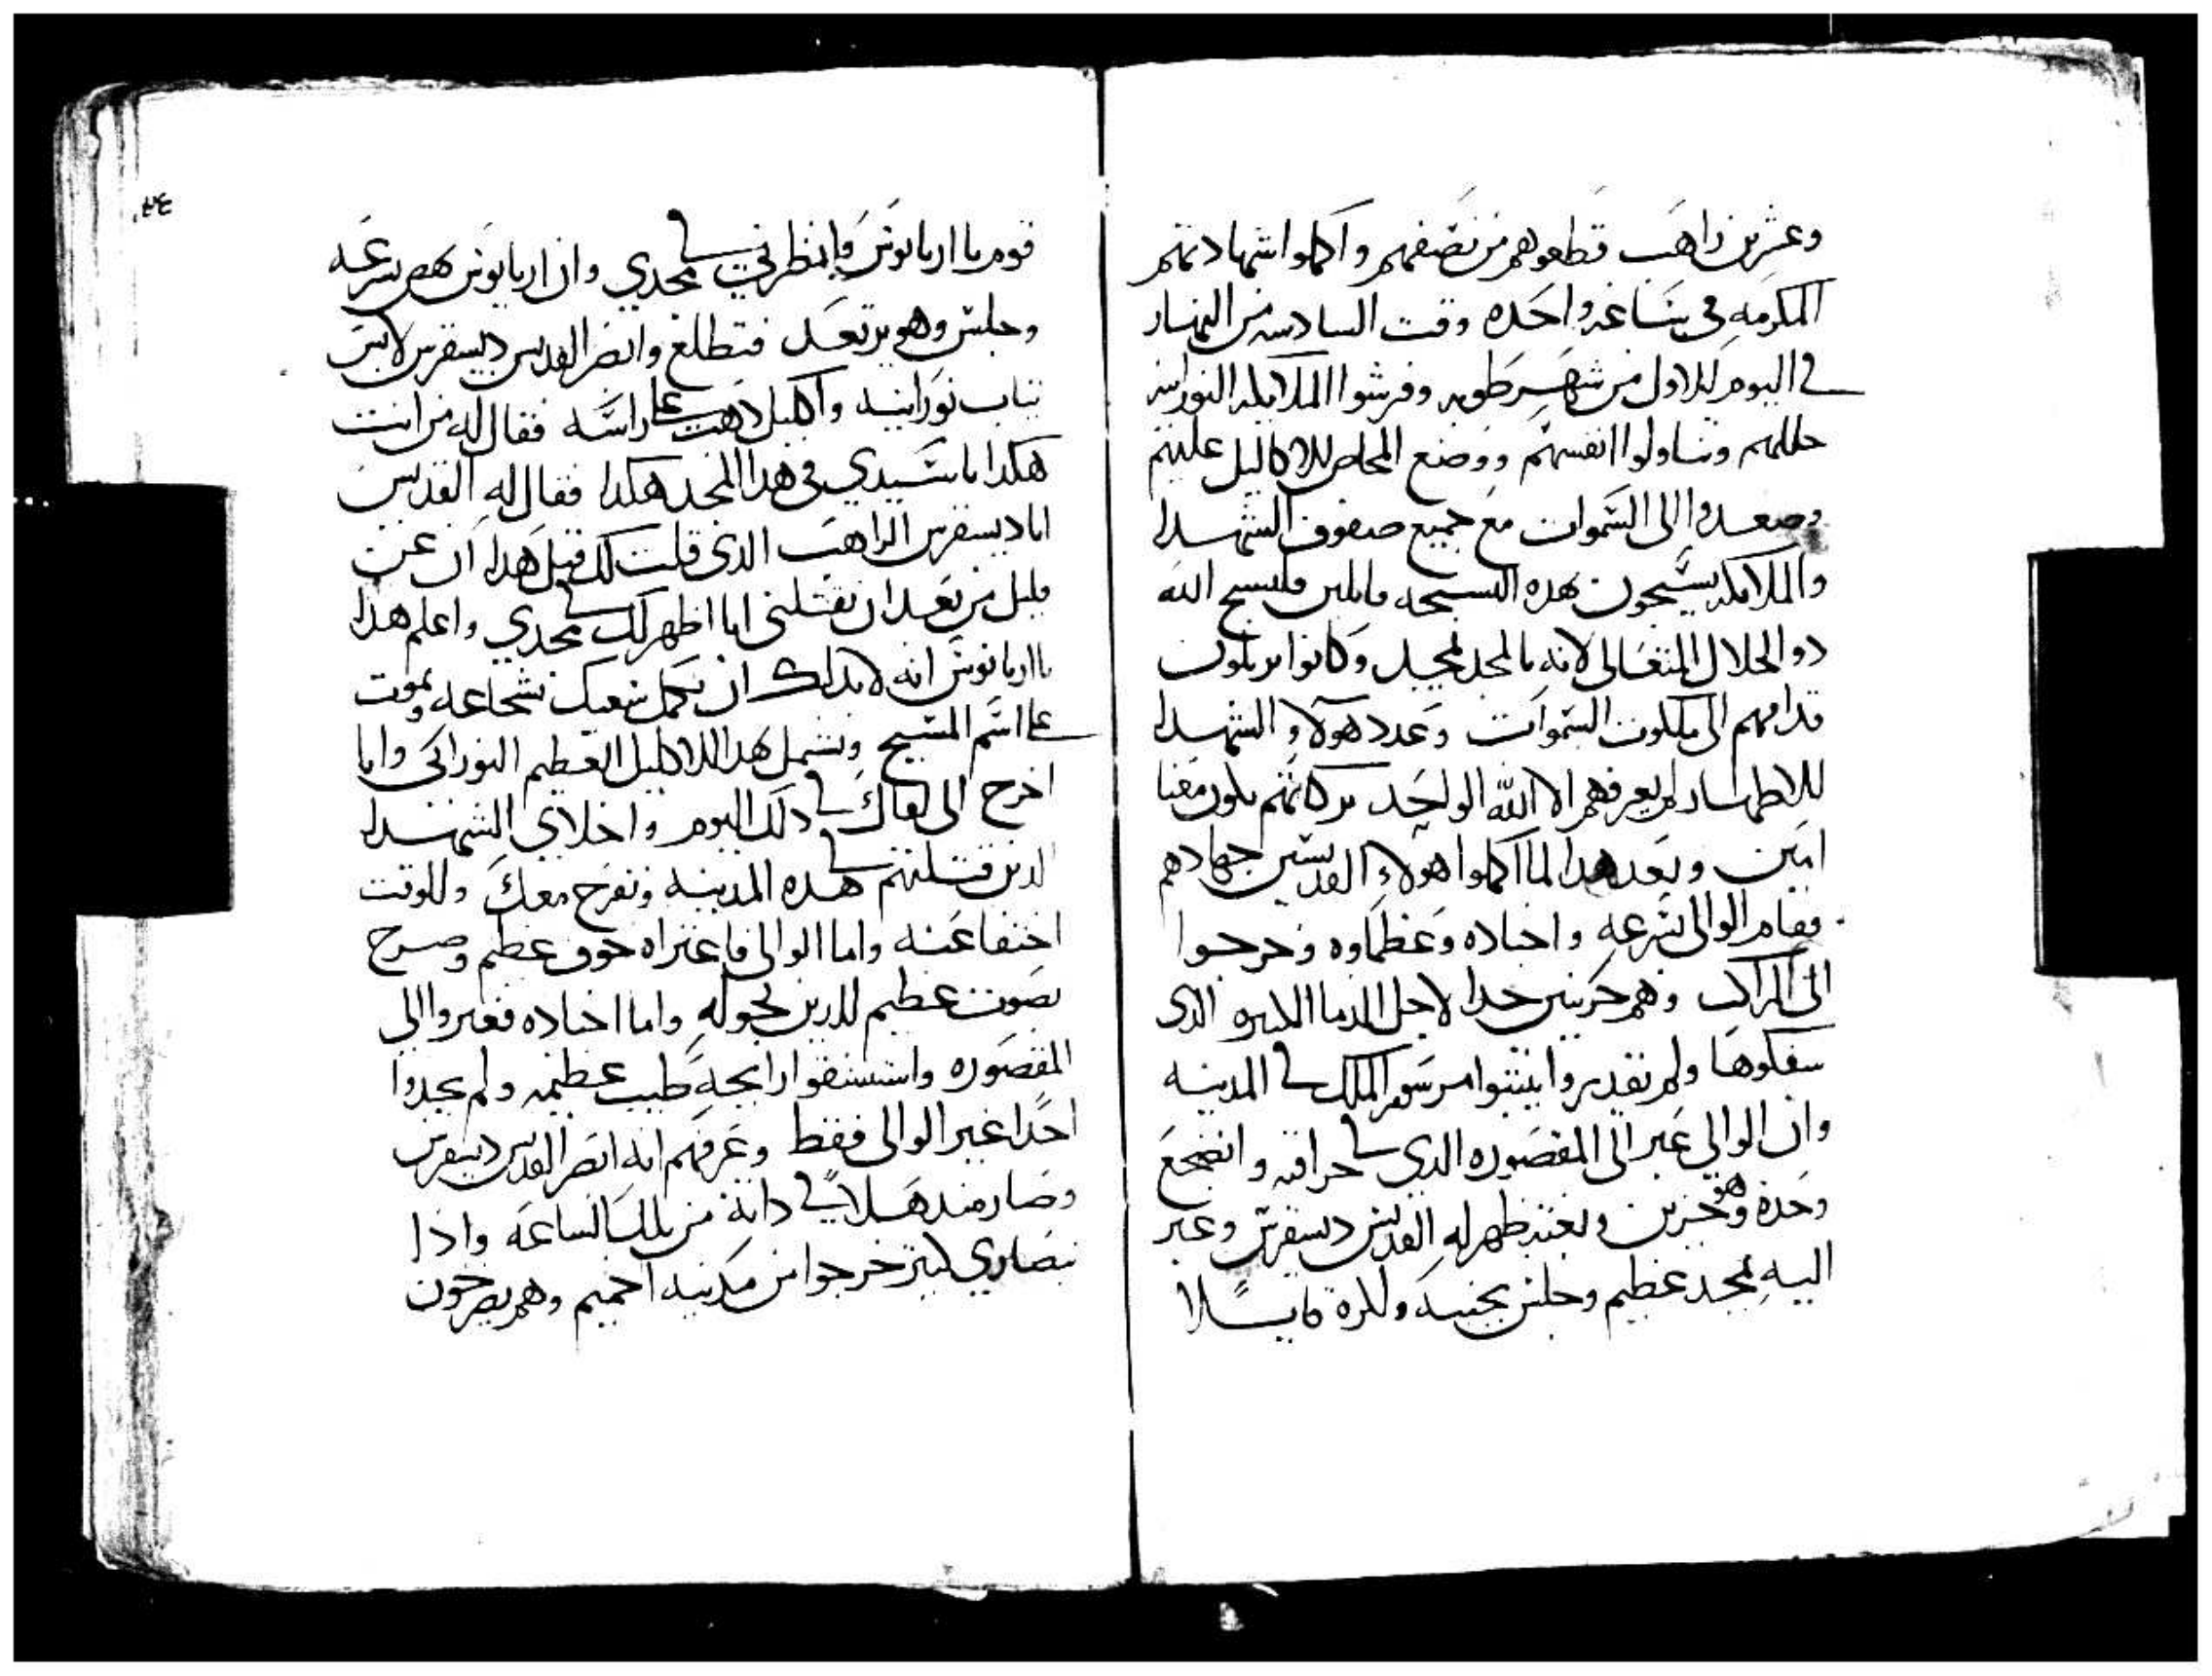 وعشرين راهب قطعوهم من نصفهم واكملوا شهادتهم
المكرمه في ساعه واحده وقت السادسه من النهار
في اليوم الاول من شهر طوبه وفرشوا الملايكه النورانيه
حللهم وتناولوا انفسهم ووضع المخلص الاكاليل عليهم
وصعدوا الى السموات مع جميع صفوف الشهدا
والملايكه يسبحون بهذه التسبحه قايلين فلنسبح الله
دو الجلال المتعالى لانه بالمجد تمجد وكانوا يرتلون
قدامهم الى ملكوت السموات وعدد هولاء الشهدا
الاطهار لم يعرفهم الا الله الواحد بركاتهم تكون معنا
امين وبعد هدا لما اكملوا هولاء القديسين جهادهم
فقام الوالى بسرعه واجناده وعظماوه وخرجوا
الى المراكب وهم حزينين جدا لاجل الدما الكثيره الدى
سفكوها ولم يقدروا يثبتوا مرسوم الملك في المدينه
وان الوالي عبر الى المقصوره الدى في حراقته وانضجع
وحده وهو حزين وبغته ظهر له القديس ديسقرس وعبر
اليه بمجد عظيم وجلس بجنبه ولكزه قايلا
٣٤
قوم يا اريانوس وانظرني في مجدي وان اريانوس نهض بسرعه
وجلس وهو يرتعد فتطلع وابصر القديس ديسقرس لابس
تياب نورانيه واكليل دهب على راسه فقال له من انت
هكدا يا سيدي في هدا المجد هكدا فقال له القديس
انا ديسقرس الراهب الدى قلت لك قبل هدا ان عن
قليل من بعد ان تقتلني انا اظهر لك في مجدي واعلم هدا
يا اريانوس انه لا بد لك ان تكمل سعيك بشجاعه وتموت
على اسم المسيح وتشمل هدا الاكليل العظيم النوراني وانا
اخرج الى لقاك في دلك اليوم واخلاي الشهدا
الدين قتلتهم في هده المدينه ونفرح معك وللوقت
اختفا عنه واما الوالى فاعتراه خوف عظيم وصرخ
بصوت عظيم للدين حوله واما اجناده فعبروا الى
المقصوره واستنشقوا رايحه طيب عظيمه ولم يجدوا
احدا غير الوالى فقط وعرفهم انه ابصر القديس ديسقرس
وصار مندهلا في داته من تلك الساعه وادا
نصاري كتير خرجوا من مدينه اخميم وهم يصرخون